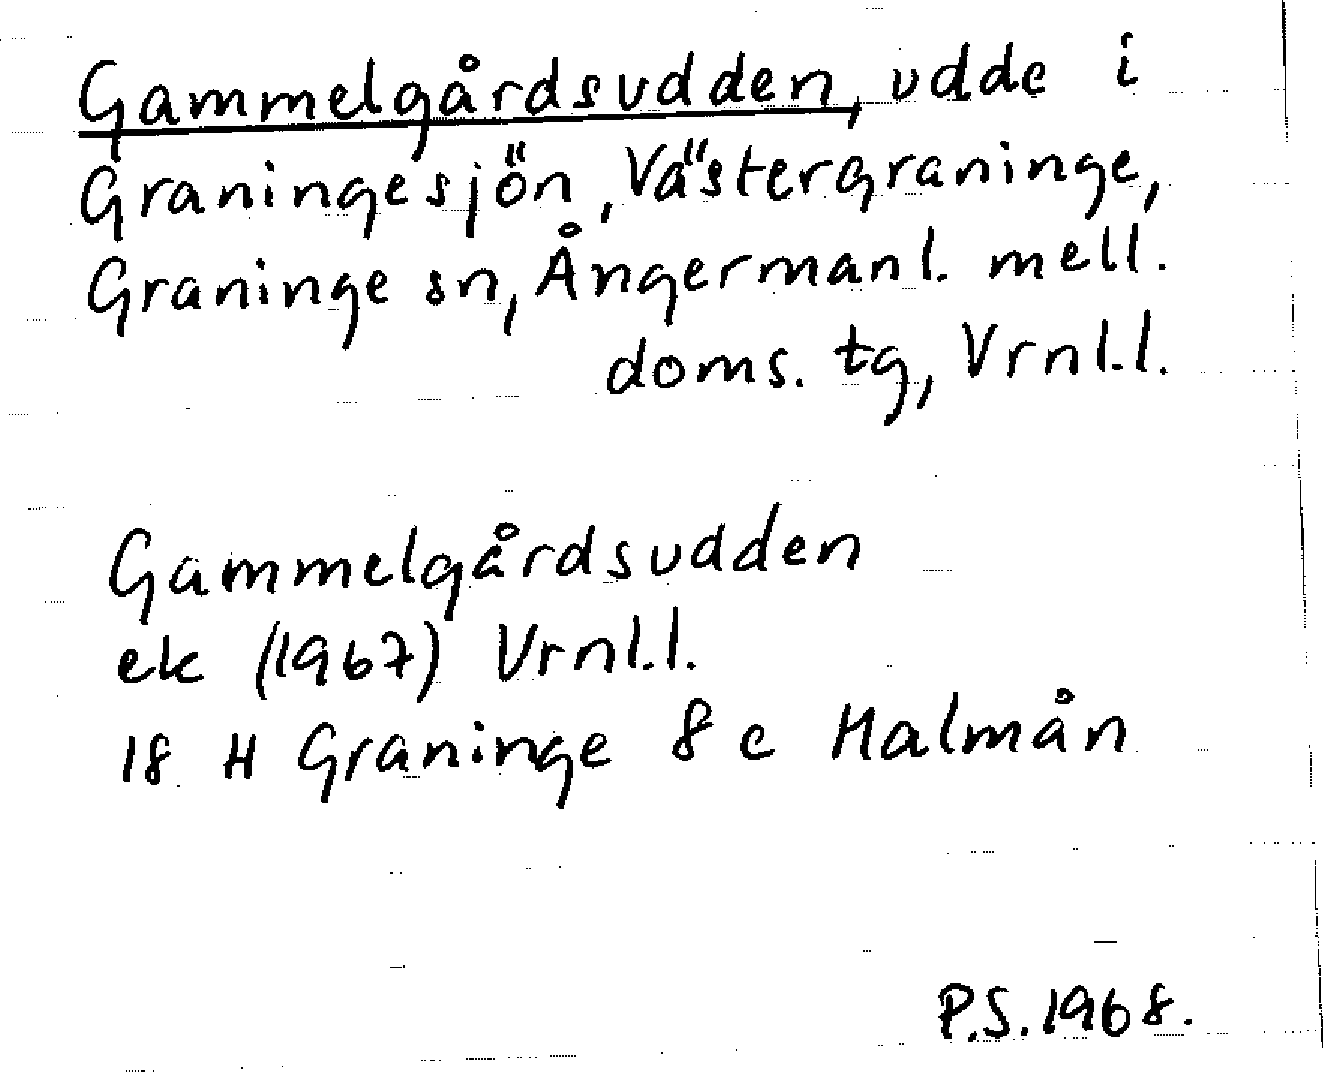 Gammelgårdsudden, udde i
Graningesjön, Västergraninge,
Graninge sn, Ångermanl. mell.
doms. tg, Vrnl.l.
Gammelgårdsudden
ek (1967) Vrnl.l.
18 H Graninge 8 c Halmån
P.S. 1968.